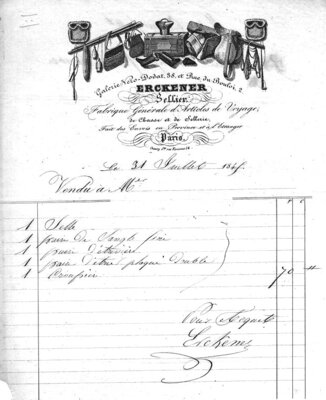 Galerie Néro-Dodat, 38, et Rue du Bouloi, 2.
ERCKENER
Sellier,
Fabrique Générale d'Articles de Voyage,
de Chasse et de Sellerie,
Fait des Envois en Province et à l'Etranger
Paris,
Ce 31 Juillet 184
Vendu à Mr
1 Selle
1 paire de Sangle fine
1 paire d'étrivière
1 paire d'étrier plaqué Double
1 Croupière
70 "
Pour Acquit
Erckener